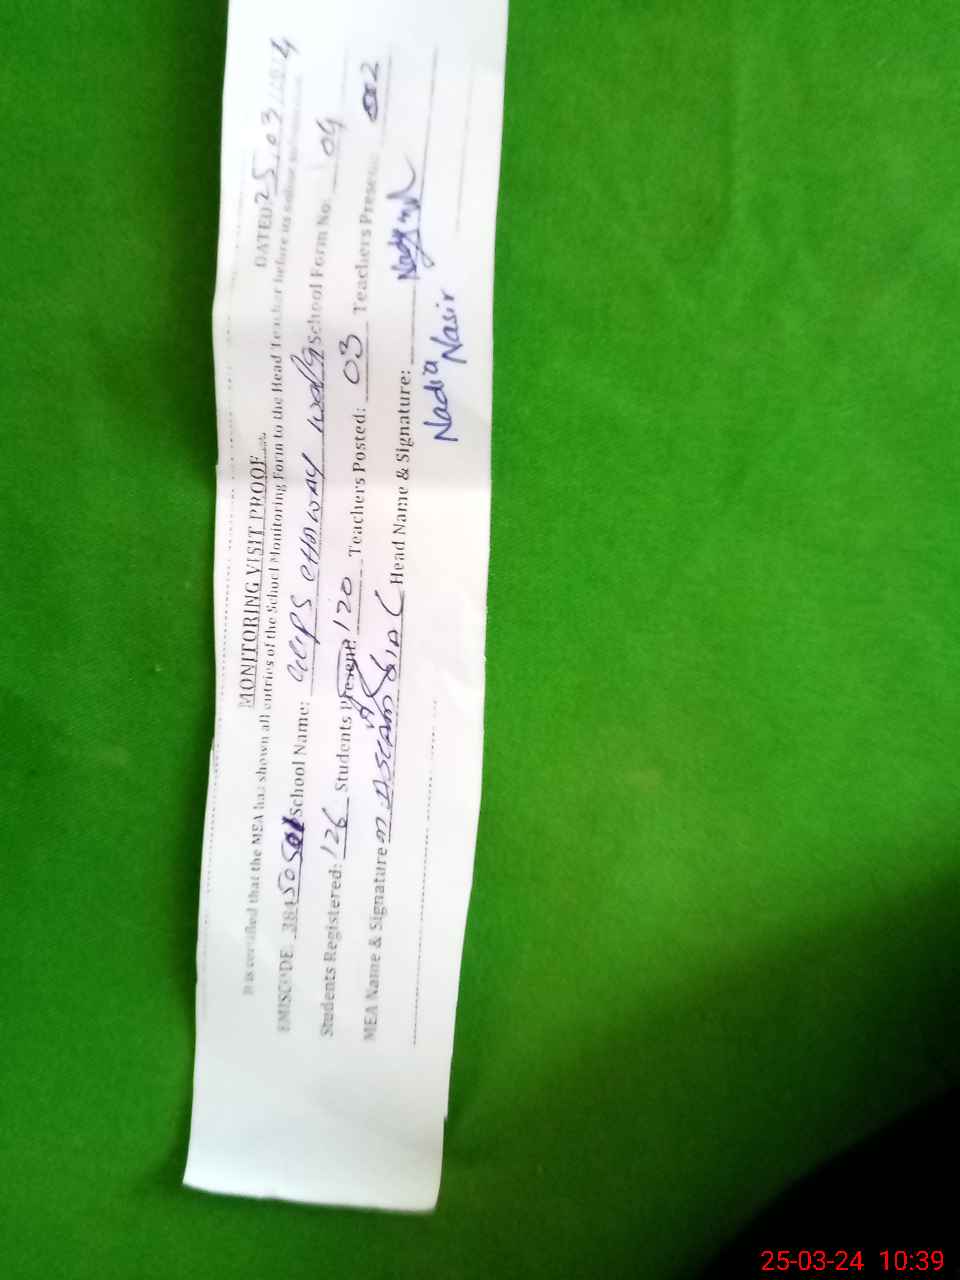 MONITORING VISIT PROOF DATED 25.03.2024
It is certified that the MEA has shown all entries of the School Monitoring Form to the Head Teacher before its
EMISCODE: 38450 School Name: School Form No: 09
Students Registered: 126 Students Present: A 120 Teachers Posted: 03 Teachers Present: 002
MEA Name & Signature M. ASLAM Head Name & Signature:
Nadia Nasir
25-03-24 10:39